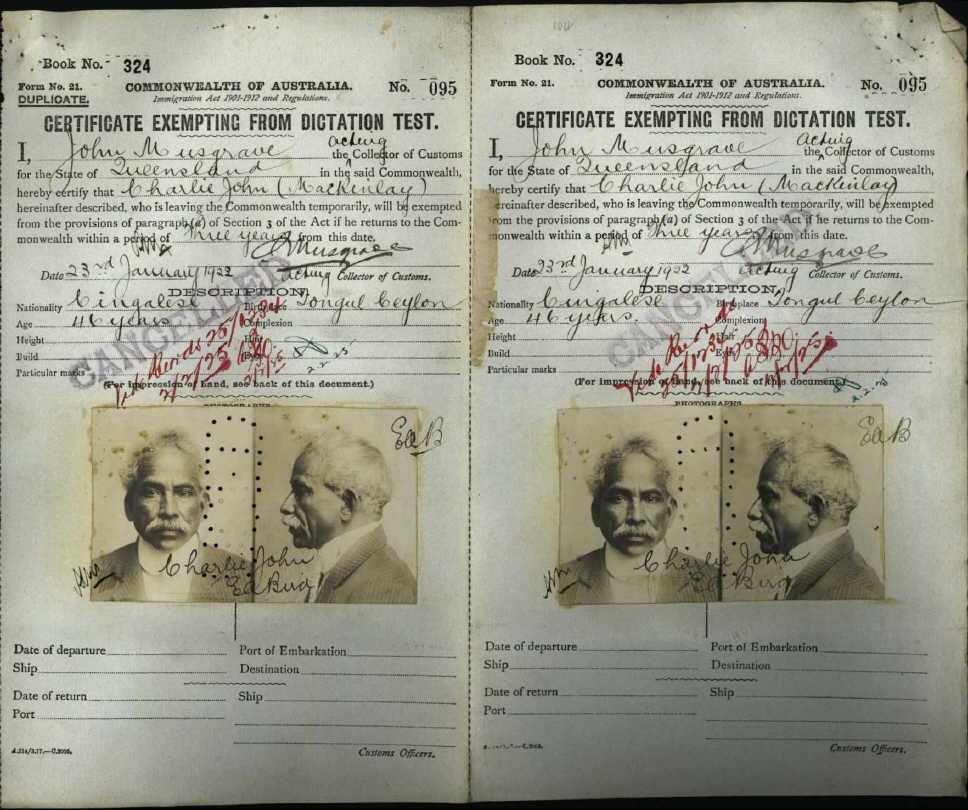 Book No. 324
Form No. 21.
DUPLICATE.
COMMONWEALTH OF AUSTRALIA.
Immigration Act 1901-1912 and Regulations.
No. 095
CERTIFICATE EXEMPTING FROM DICTATION TEST.
I, John Musgrave acting the Collector of Customs
for the State of Queensland in the said Commonwealth,
hereby certify that Charlie John (Mackinlay)
hereinafter described, who is leaving the Commonwealth temporarily, will be exempted
from the provisions of paragraph (a) of Section 3 of the Act if he returns to the Com-
monwealth within a period of Three years from this date.
J Musgrave
Date 23rd January 1922 Acting Collector of Customs.
CANCELLED
DESCRIPTION.
Nationality Cingalese Birthplace Tongul Ceylon
Age 46 years. Complexion
Height Hair
Build Eyes
Particular marks
(For impression of hand, see back of this document.)
PHOTOGRAPHS
Charlie John
Ed Bird
Date of departure Port of Embarkation
Ship Destination
Date of return Ship
Port
Customs Officers.
Book No. 324
Form No. 21.
COMMONWEALTH OF AUSTRALIA.
Immigration Act 1901-1912 and Regulations.
No. 095
CERTIFICATE EXEMPTING FROM DICTATION TEST.
I, John Musgrave Acting the Collector of Customs
for the State of Queensland in the said Commonwealth,
hereby certify that Charlie John (Mackinlay)
hereinafter described, who is leaving the Commonwealth temporarily, will be exempted
from the provisions of paragraph (a) of Section 3 of the Act if he returns to the Com-
monwealth within a period of Three years from this date.
J Musgrave
Date 23rd January 1922 Acting Collector of Customs.
CANCELLED
DESCRIPTION.
Nationality Cingalese Birthplace Tongul Ceylon
Age 46 years. Complexion
Height Hair
Build Eyes
Particular marks
(For impression of hand, see back of this document.)
PHOTOGRAPHS
Charlie John
Ed Bird
Date of departure Port of Embarkation
Ship Destination
Date of return Ship
Port
Customs Officers.